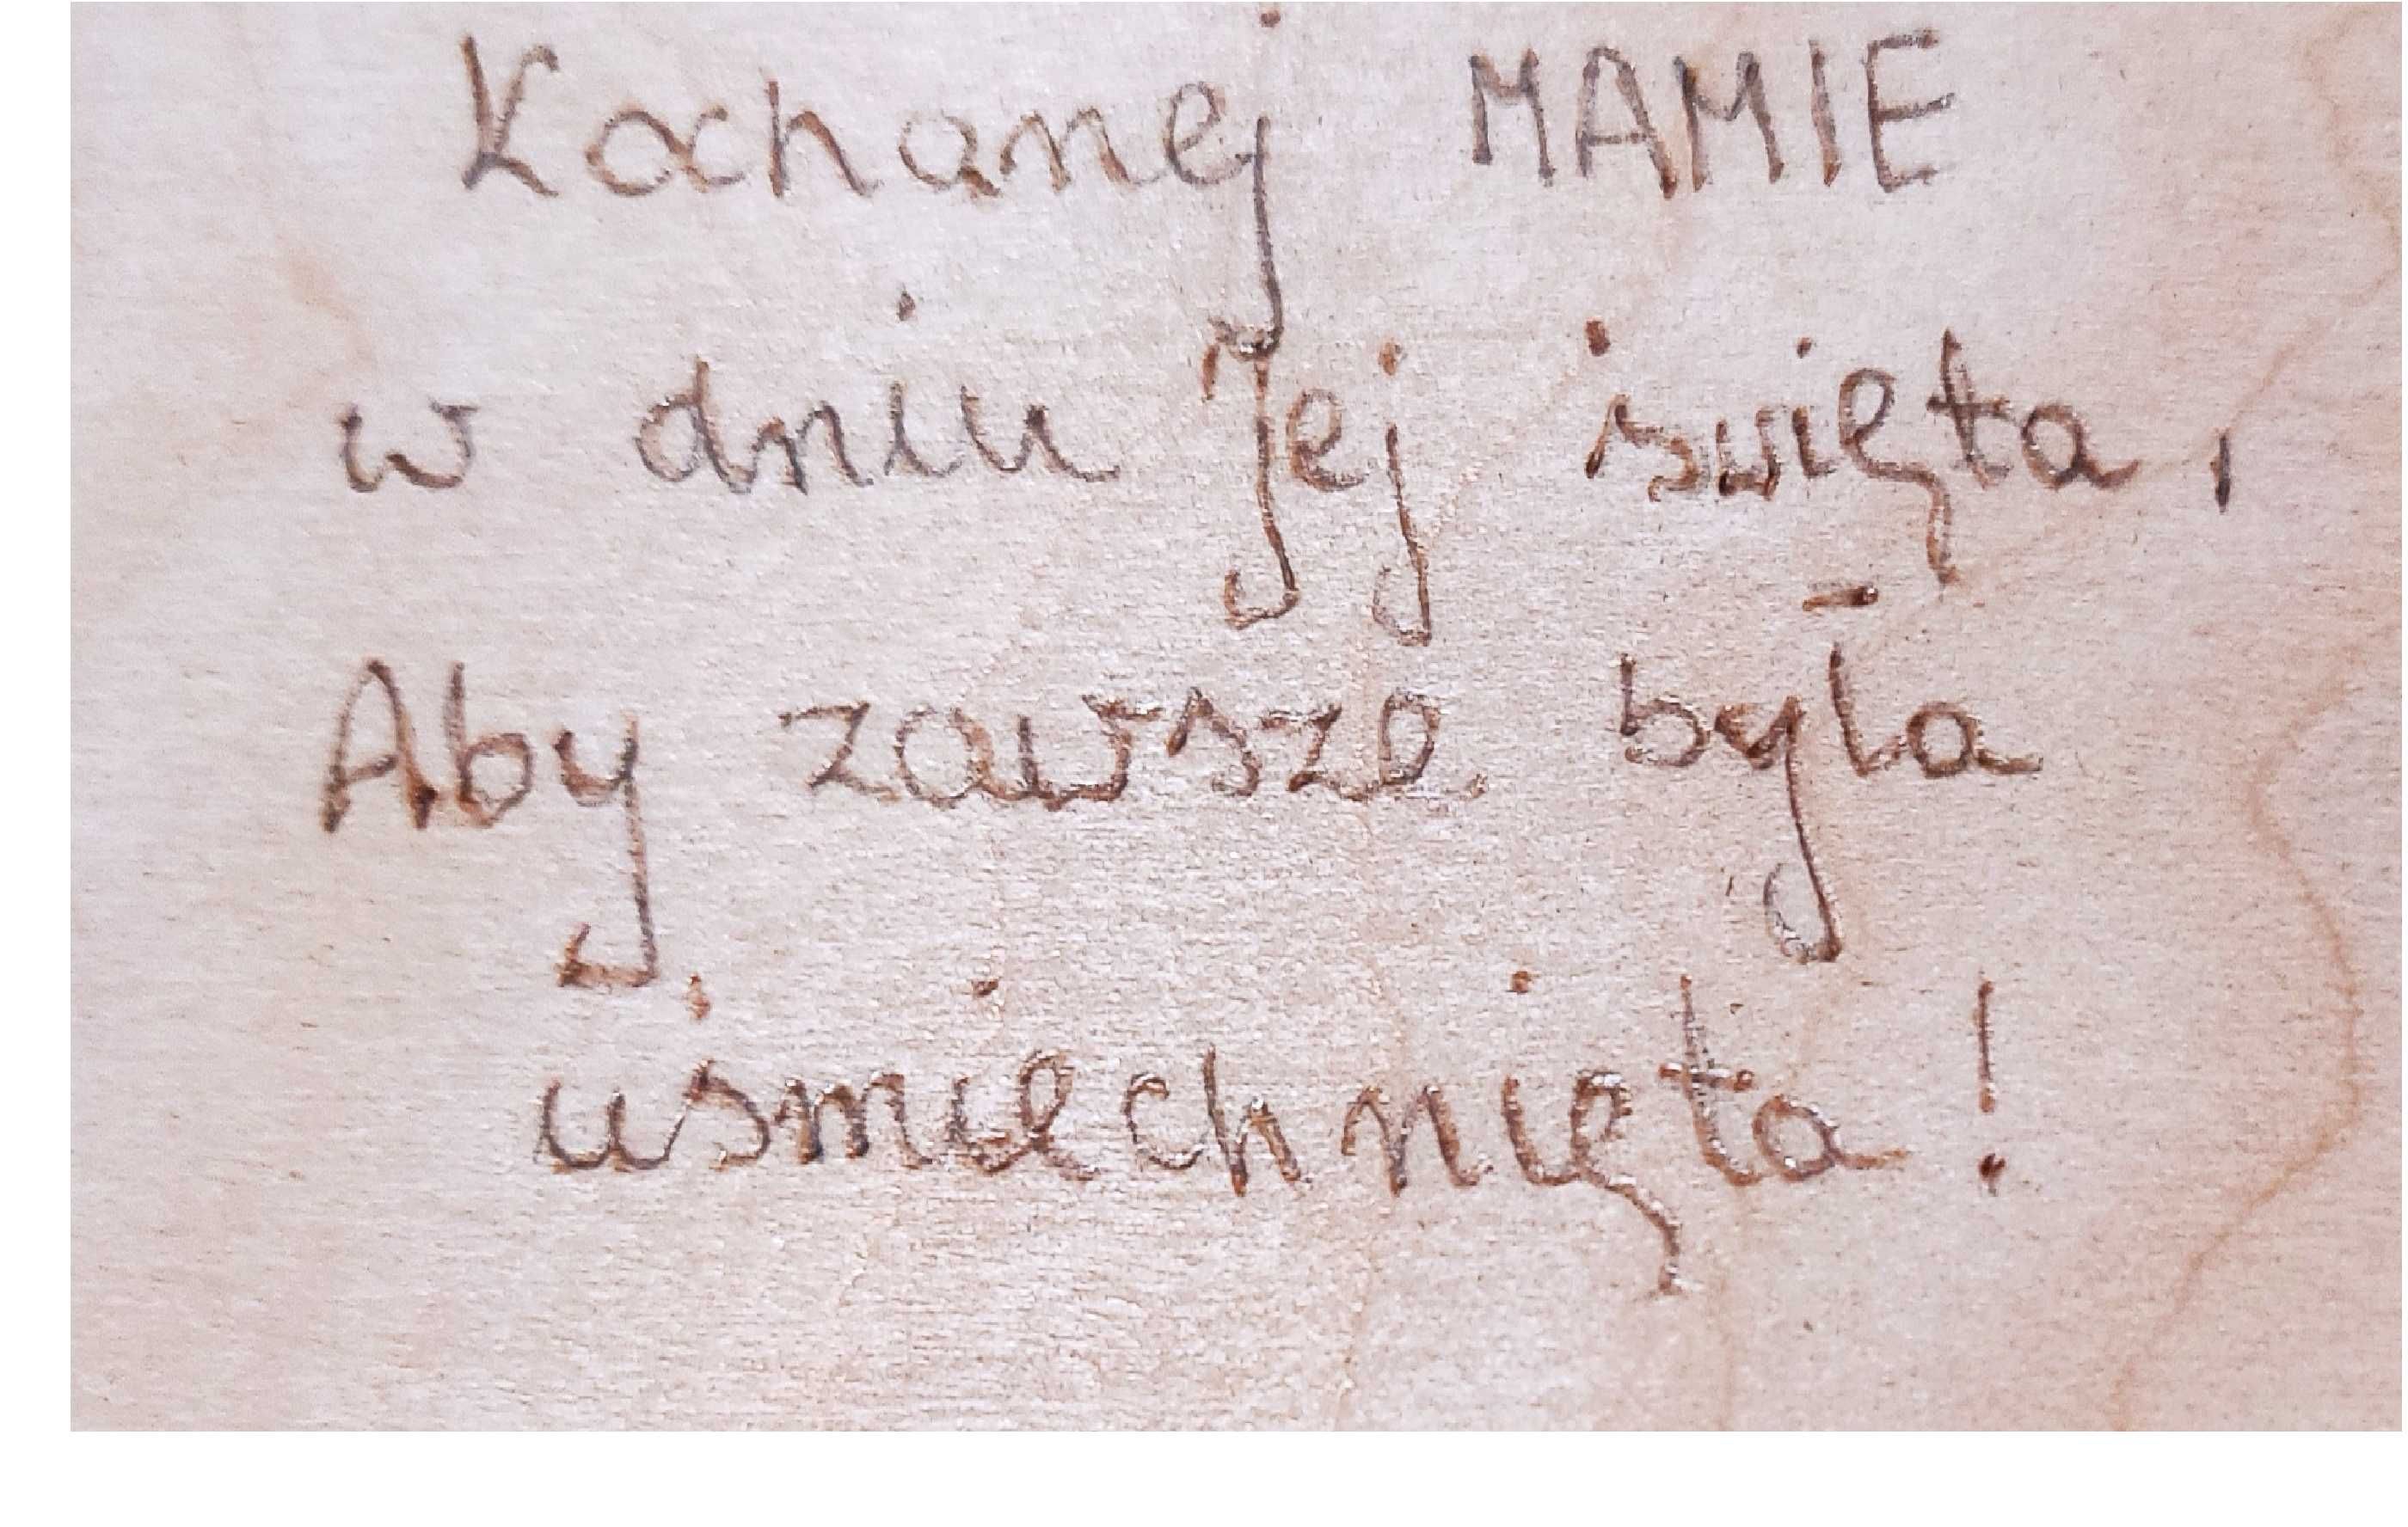 Kochanej MAMIE
w dniu Jej święta,
Aby zawsze była
uśmiechnięta!